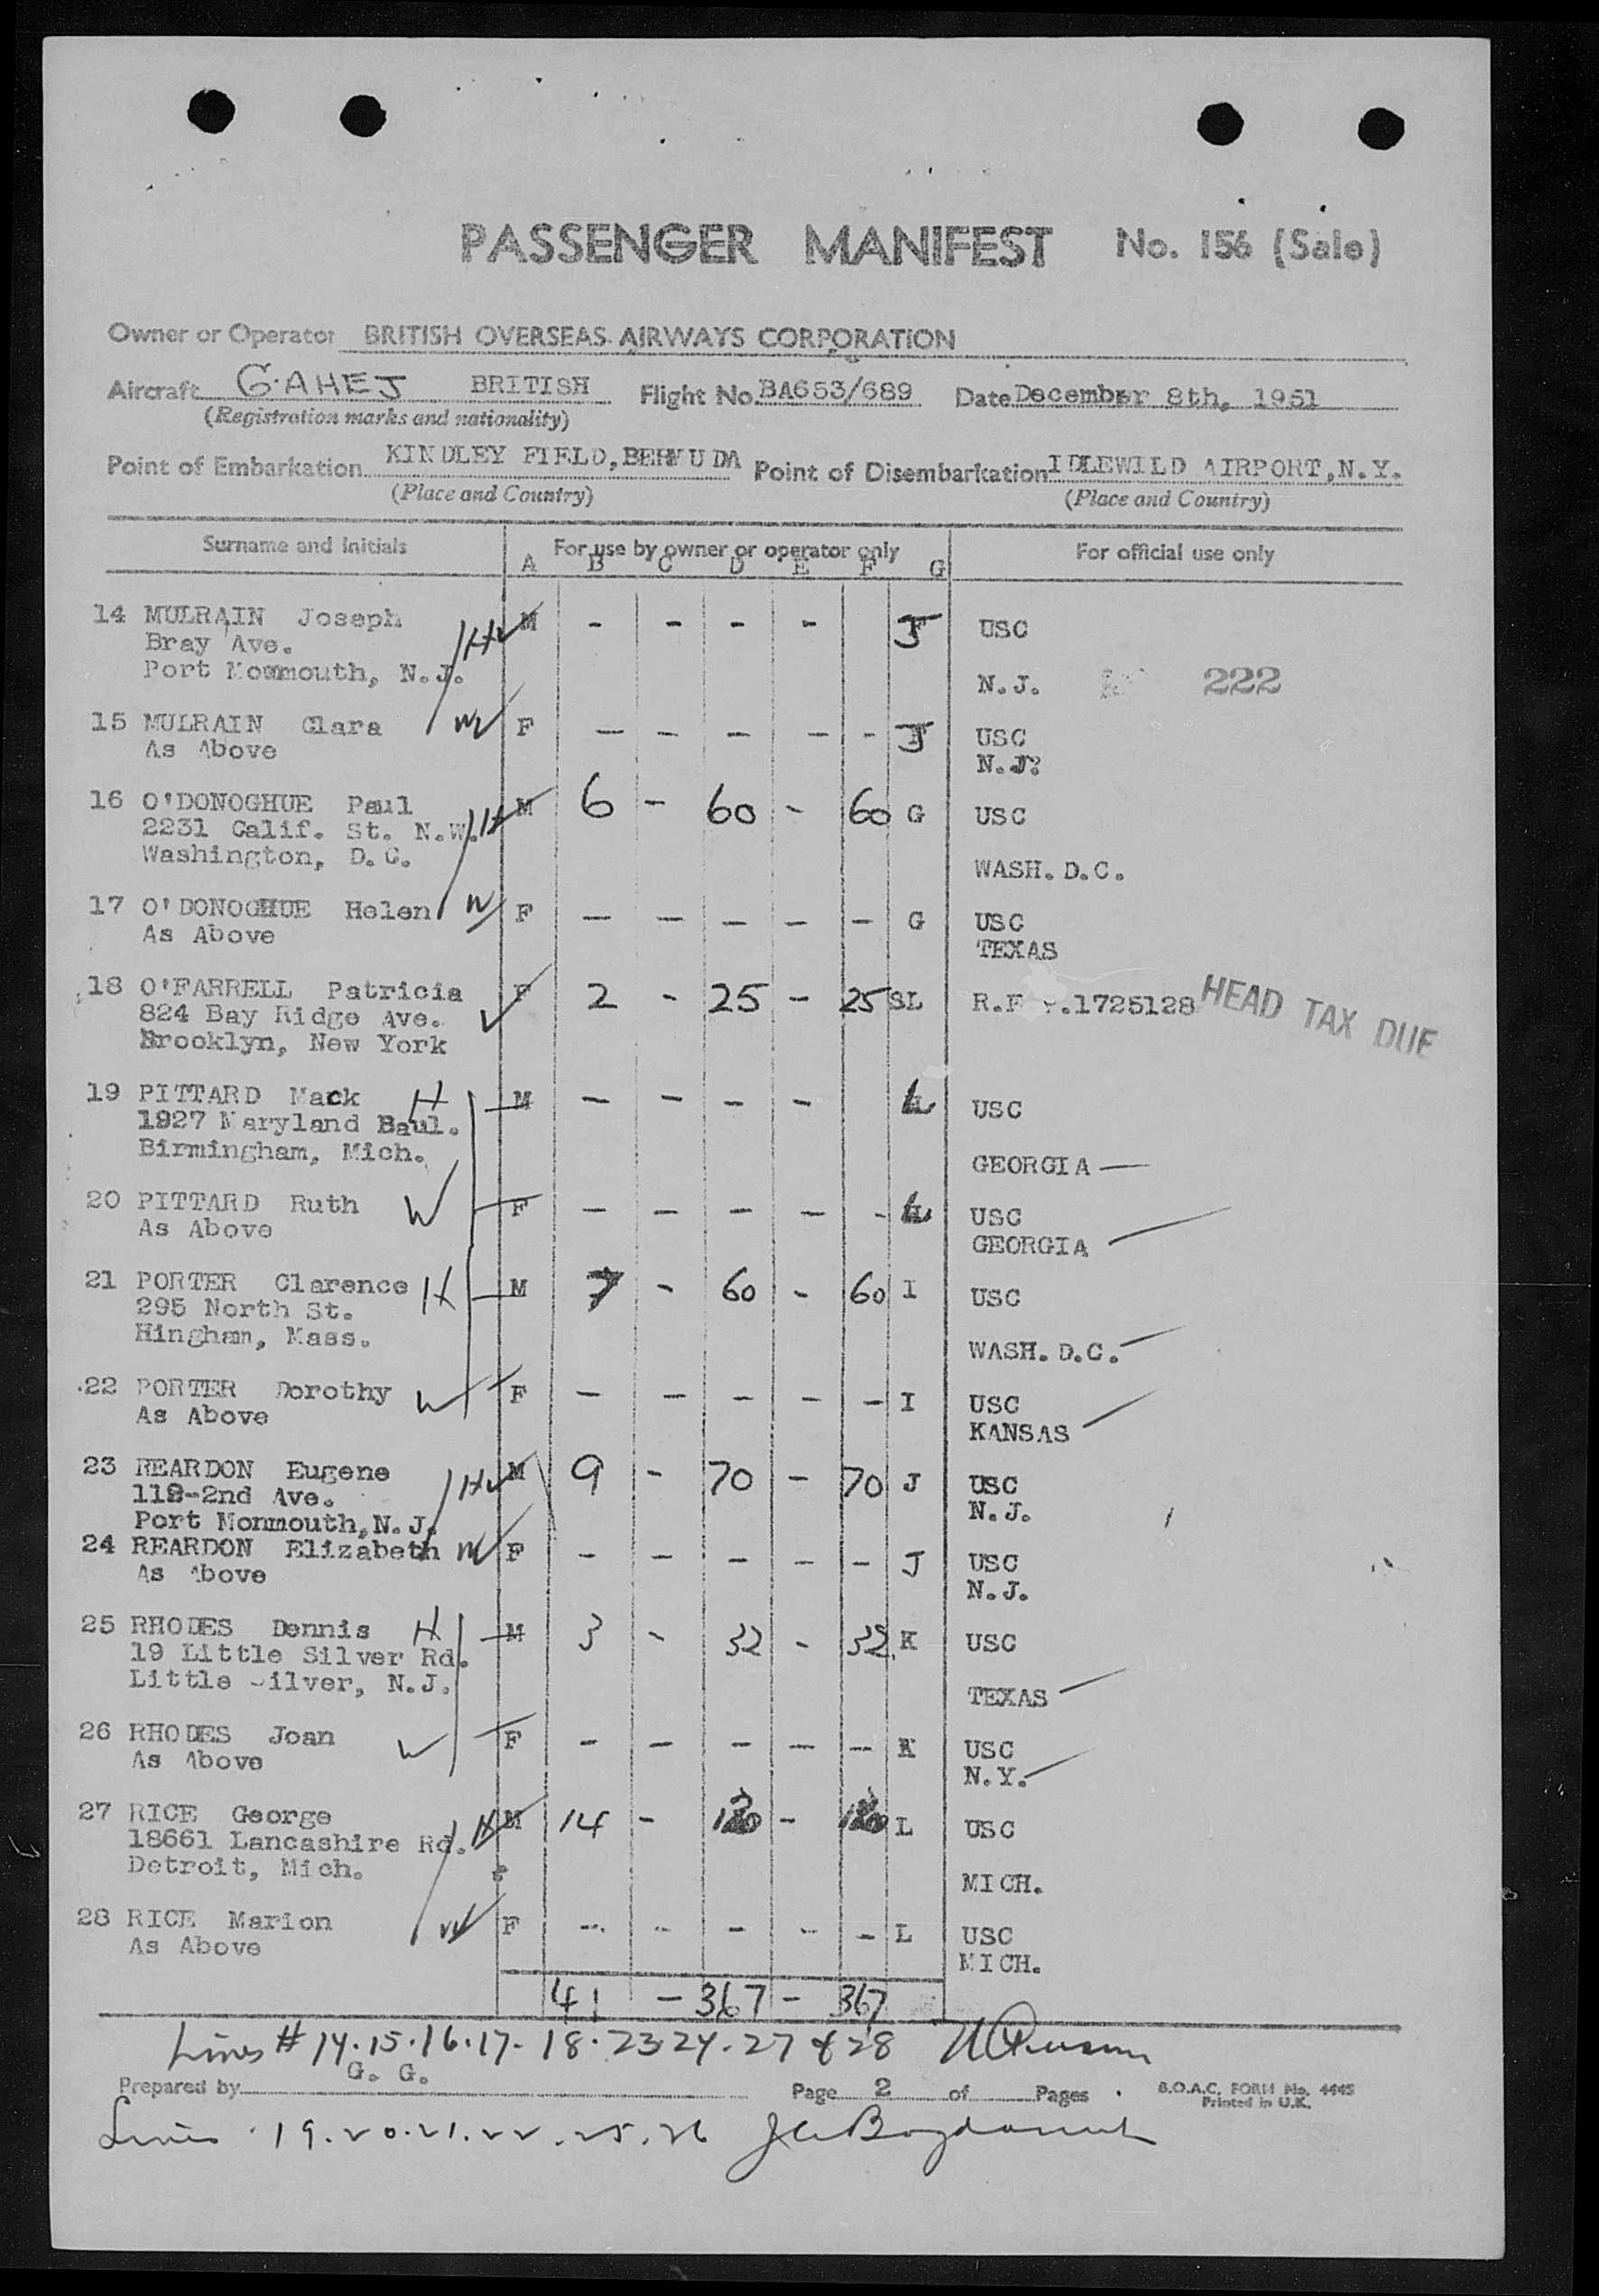 PASSENGER MANIFEST No. 156 (Sale)
Owner or Operator BRITISH OVERSEAS AIRWAYS CORPORATION
Aircraft G.AHEJ BRITISH Flight No. BA653/689 Date December 8th, 1951
(Registration marks and nationality)
Point of Embarkation KINDLEY FIELD, BERMUDA Point of Disembarkation IDLEWILD AIRPORT, N.Y.
(Place and Country) (Place and Country)
Surname and Initials For use by owner or operator only For official use only
A B C D E F G
14 MULRAIN Joseph H M - - - - J USC
Bray Ave.
Port Monmouth, N.J. N.J. 222
15 MULRAIN Clara W F - - - - - J USC
As Above N.J.
16 O'DONOGHUE Paul H M 6 - 60 - 60 G USC
2231 Calif. St. N.W.
Washington, D.C. WASH. D.C.
17 O'DONOGHUE Helen W F - - - - - G USC
As Above TEXAS
18 O'FARRELL Patricia F 2 - 25 - 25 SL 1725128 HEAD TAX DUE
824 Bay Ridge Ave.
Brooklyn, New York
19 PITTARD Mack H M - - - - USC
1927 Maryland Baul.
Birmingham, Mich. GEORGIA
20 PITTARD Ruth W F - - - - - USC
As Above GEORGIA
21 PORTER Clarence H M 7 - 60 - 60 I USC
295 North St.
Hingham, Mass. WASH. D.C.
22 PORTER Dorothy W F - - - - - I USC
As Above KANSAS
23 REARDON Eugene H M 9 - 70 - 70 J USC
118-2nd Ave. N.J.
Port Monmouth, N.J.
24 REARDON Elizabeth W F - - - - - J USC
As Above N.J.
25 RHODES Dennis H M 3 - 32 - 32 K USC
19 Little Silver Rd.
Little Silver, N.J. TEXAS
26 RHODES Joan W F - - - - - K USC
As Above N.Y.
27 RICE George H M 14 - 120 - 120 L USC
18661 Lancashire Rd.
Detroit, Mich. MICH.
28 RICE Marion W F - - - - - L USC
As Above MICH.
41 - 367 - 367
Lines # 14.15.16.17.18.23 24.27 & 28
Prepared by G. G. Page 2 of Pages B.O.A.C. FORM No. 4445
Printed in U.K.
Lines 19.20.21.22.25.26